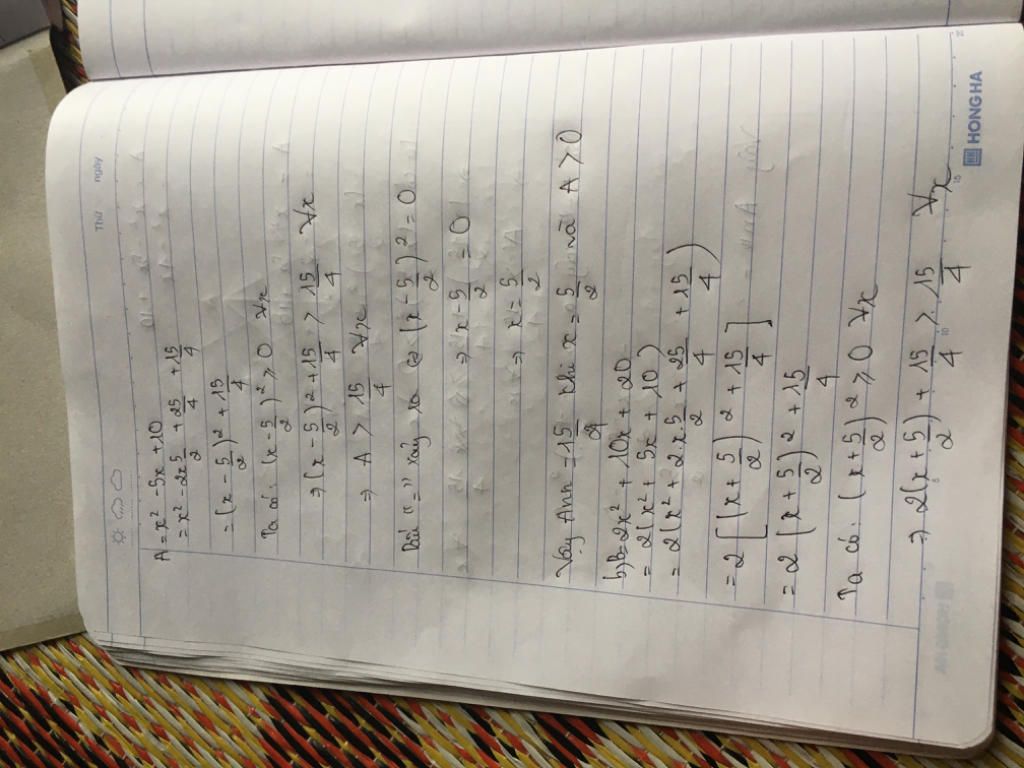 Thứ ngày
A = x² - 5x + 10
= x² - 2x 5/2 + 25/4 + 15/4
= (x - 5/2)² + 15/4
Ta có: (x - 5/2)² ≥ 0 ∀x
⇒ (x - 5/2)² + 15/4 > 15/4 ∀x
⇒ A > 15/4 ∀x
Dấu "=" xảy ra ⇔ (x - 5/2)² = 0
⇒ x - 5/2 = 0
⇒ x = 5/2
Vậy Amin = 15/4 khi x = 5/2 và A > 0
b) B = 2x² + 10x + 20
= 2(x² + 5x + 10)
= 2(x² + 2.x 5/2 + 25/4 + 15/4)
= 2[(x + 5/2)² + 15/4]
= 2(x + 5/2)² + 15/4
Ta có: (x + 5/2)² ≥ 0 ∀x
⇒ 2(x + 5/2) + 15/4 > 15/4 ∀x
HONG HA